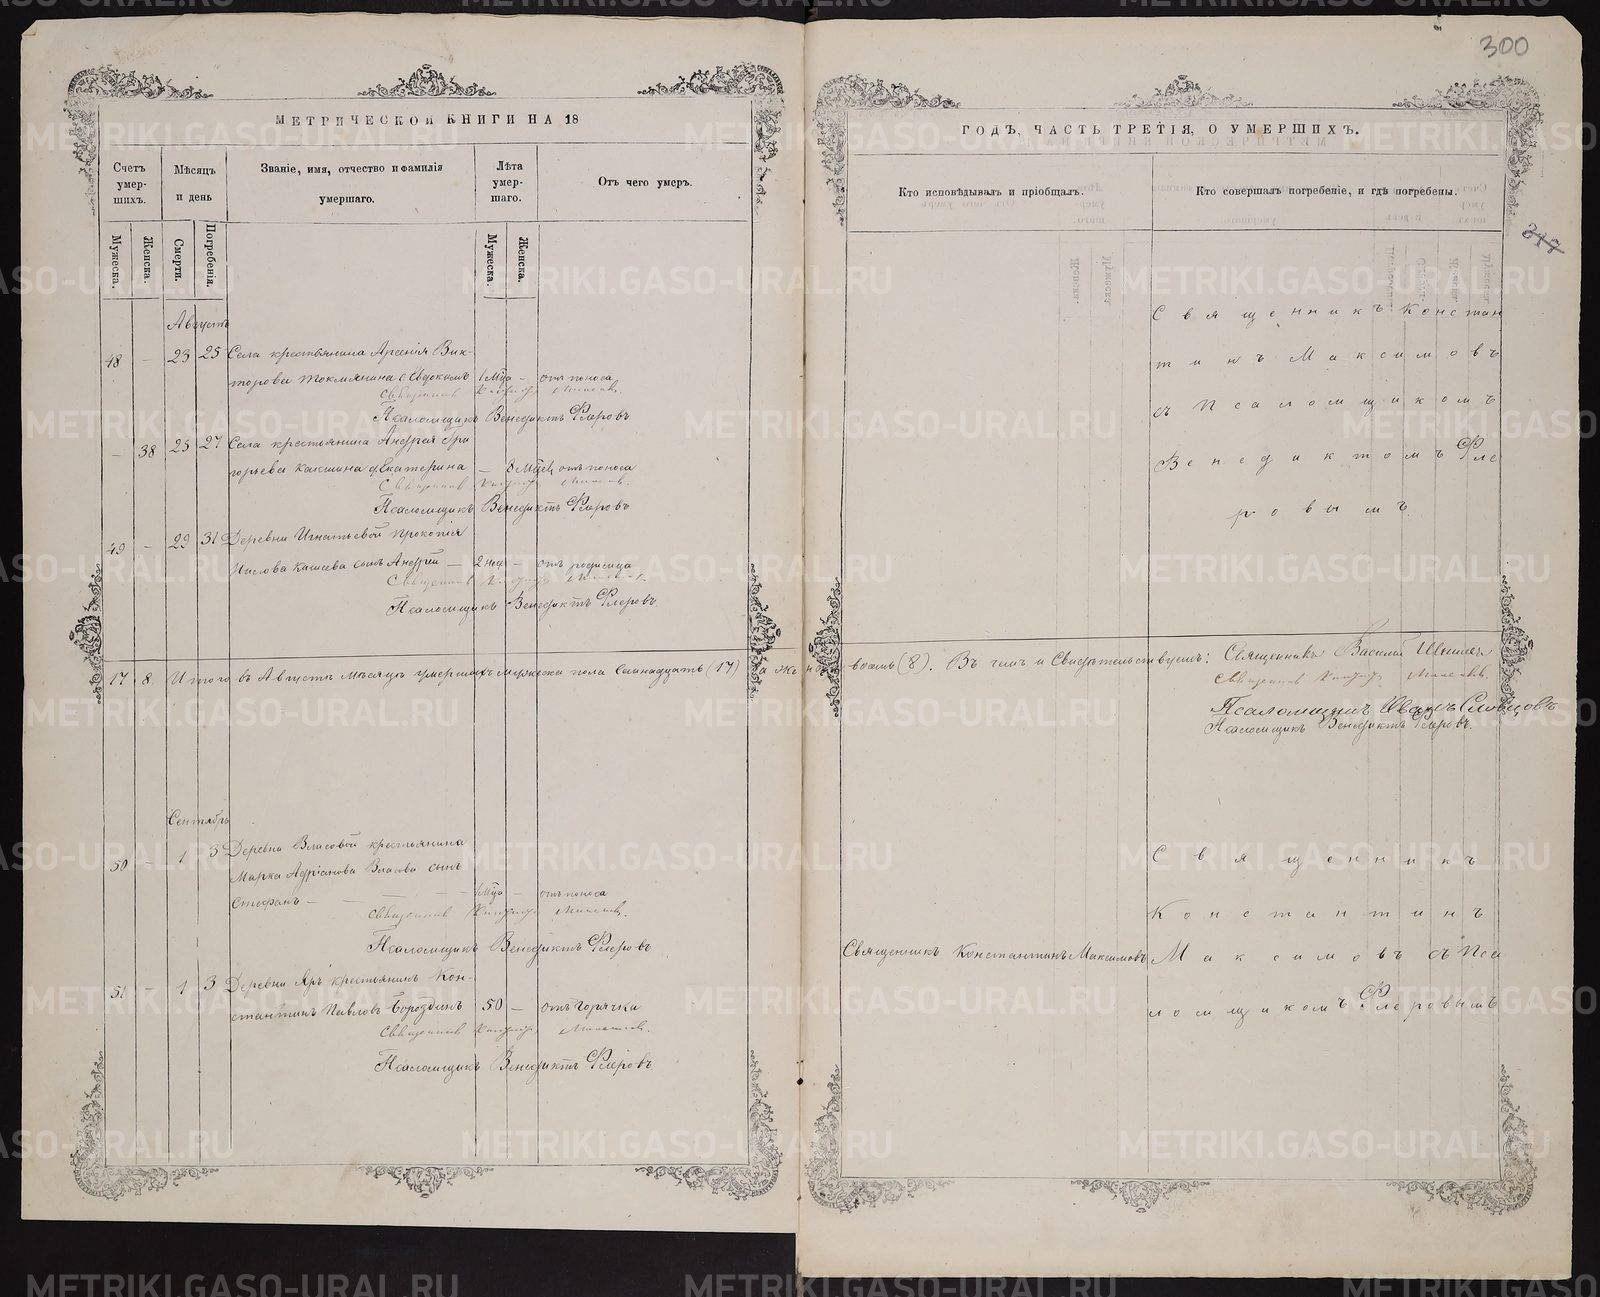 300
МЕТРИЧЕСКОЙ КНИГИ НА 18
ГОДЪ, ЧАСТЬ ТРЕТІЯ, О УМЕРШИХЪ.
Счетъ умер-шихъ.
Мѣсяцъ и день
Званіе, имя, отчество и фамилія умершаго.
Лѣта умер-шаго.
Отъ чего умеръ.
Кто исповѣдывалъ и пріобщалъ.
Кто совершалъ погребеніе, и гдѣ погребены.
Мужеска.
Женска.
Смерти.
Погребенія.
Мужеска.
Женска.
317
Августъ
48 – 23 25 Села крестьянина Арсенія Вик-
торова с. Евдокимъ 1 мца – отъ поноса
Священник
Псаломщикъ Венедиктъ Флеровъ
– 38 25 27 Села крестьянина Андрея Гри
горьева д. Екатерина – 8 отъ поноса
Священник
Псаломщикъ Венедиктъ Флеровъ
49 – 29 31 Деревни Игнатьевой Прокопія
сынъ Андрей – 2 нед – отъ родимца
Священник
Псаломщикъ Венедиктъ Флеровъ
Священникъ Констан
тинъ Максимовъ
съ Псаломщикомъ
Венедиктомъ Фле
ровымъ
17 8 Итого въ Августѣ мѣсяцѣ умершихъ мужеска пола семнадцать (17) а женска восемь (8). Въ чемъ и Свидѣтельствуемъ: Священникъ Василій
Священник
Псаломщикъ Иванъ Словцовъ
Псаломщикъ Венедиктъ Флеровъ.
Сентябрь
50 – 1 3 Деревни Власовой крестьянина
Марка Адріанова Власова сынъ
Стефанъ – 1 мца – отъ поноса
Священник
Псаломщикъ Венедиктъ Флеровъ
51 – 1 3 Деревни Яръ крестьянинъ Кон-
стантинъ Павловъ Бороздинъ 50 – отъ горячки
Священник
Псаломщикъ Венедиктъ Флеровъ
Священникъ Константинъ Максимовъ
Священникъ
Константинъ
Максимовъ съ Пса
ломщикомъ Флеровымъ
METRIKI.GASO-URAL.RU